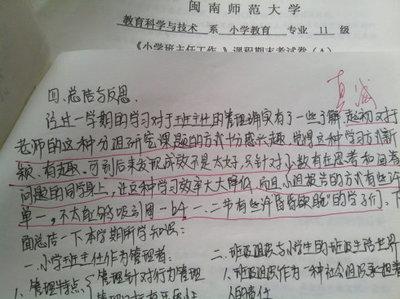 闽南师范大学
教育科学与技术 系 小学教育 专业 11 级
《小学班主任工作 》课程期末考试卷 (A)
真诚
四.总结与反思.
经过一学期的学习对于班主任的管理确实有了一些了解,起初对于
老师的这种分组研究课题的方式十分感兴趣,觉得这种学习方式新
颖、有趣,可到后来发现成效不是太好,只针对小数有在思考和问着
问题的同学身上,让这种学习效率大大降低,而且小组报告的方式有些许
单一,不太能够吸引周一b4一、二节有些许昏昏欲睡"的学子们、下
面总结一下本学期所学知识:
一.小学班主任作为管理者:
1.管理特点、管理针对行为管理
二.班级组织与小学生的班级生活世界
1.班级组织作为一种社会组织承担着
人的责任